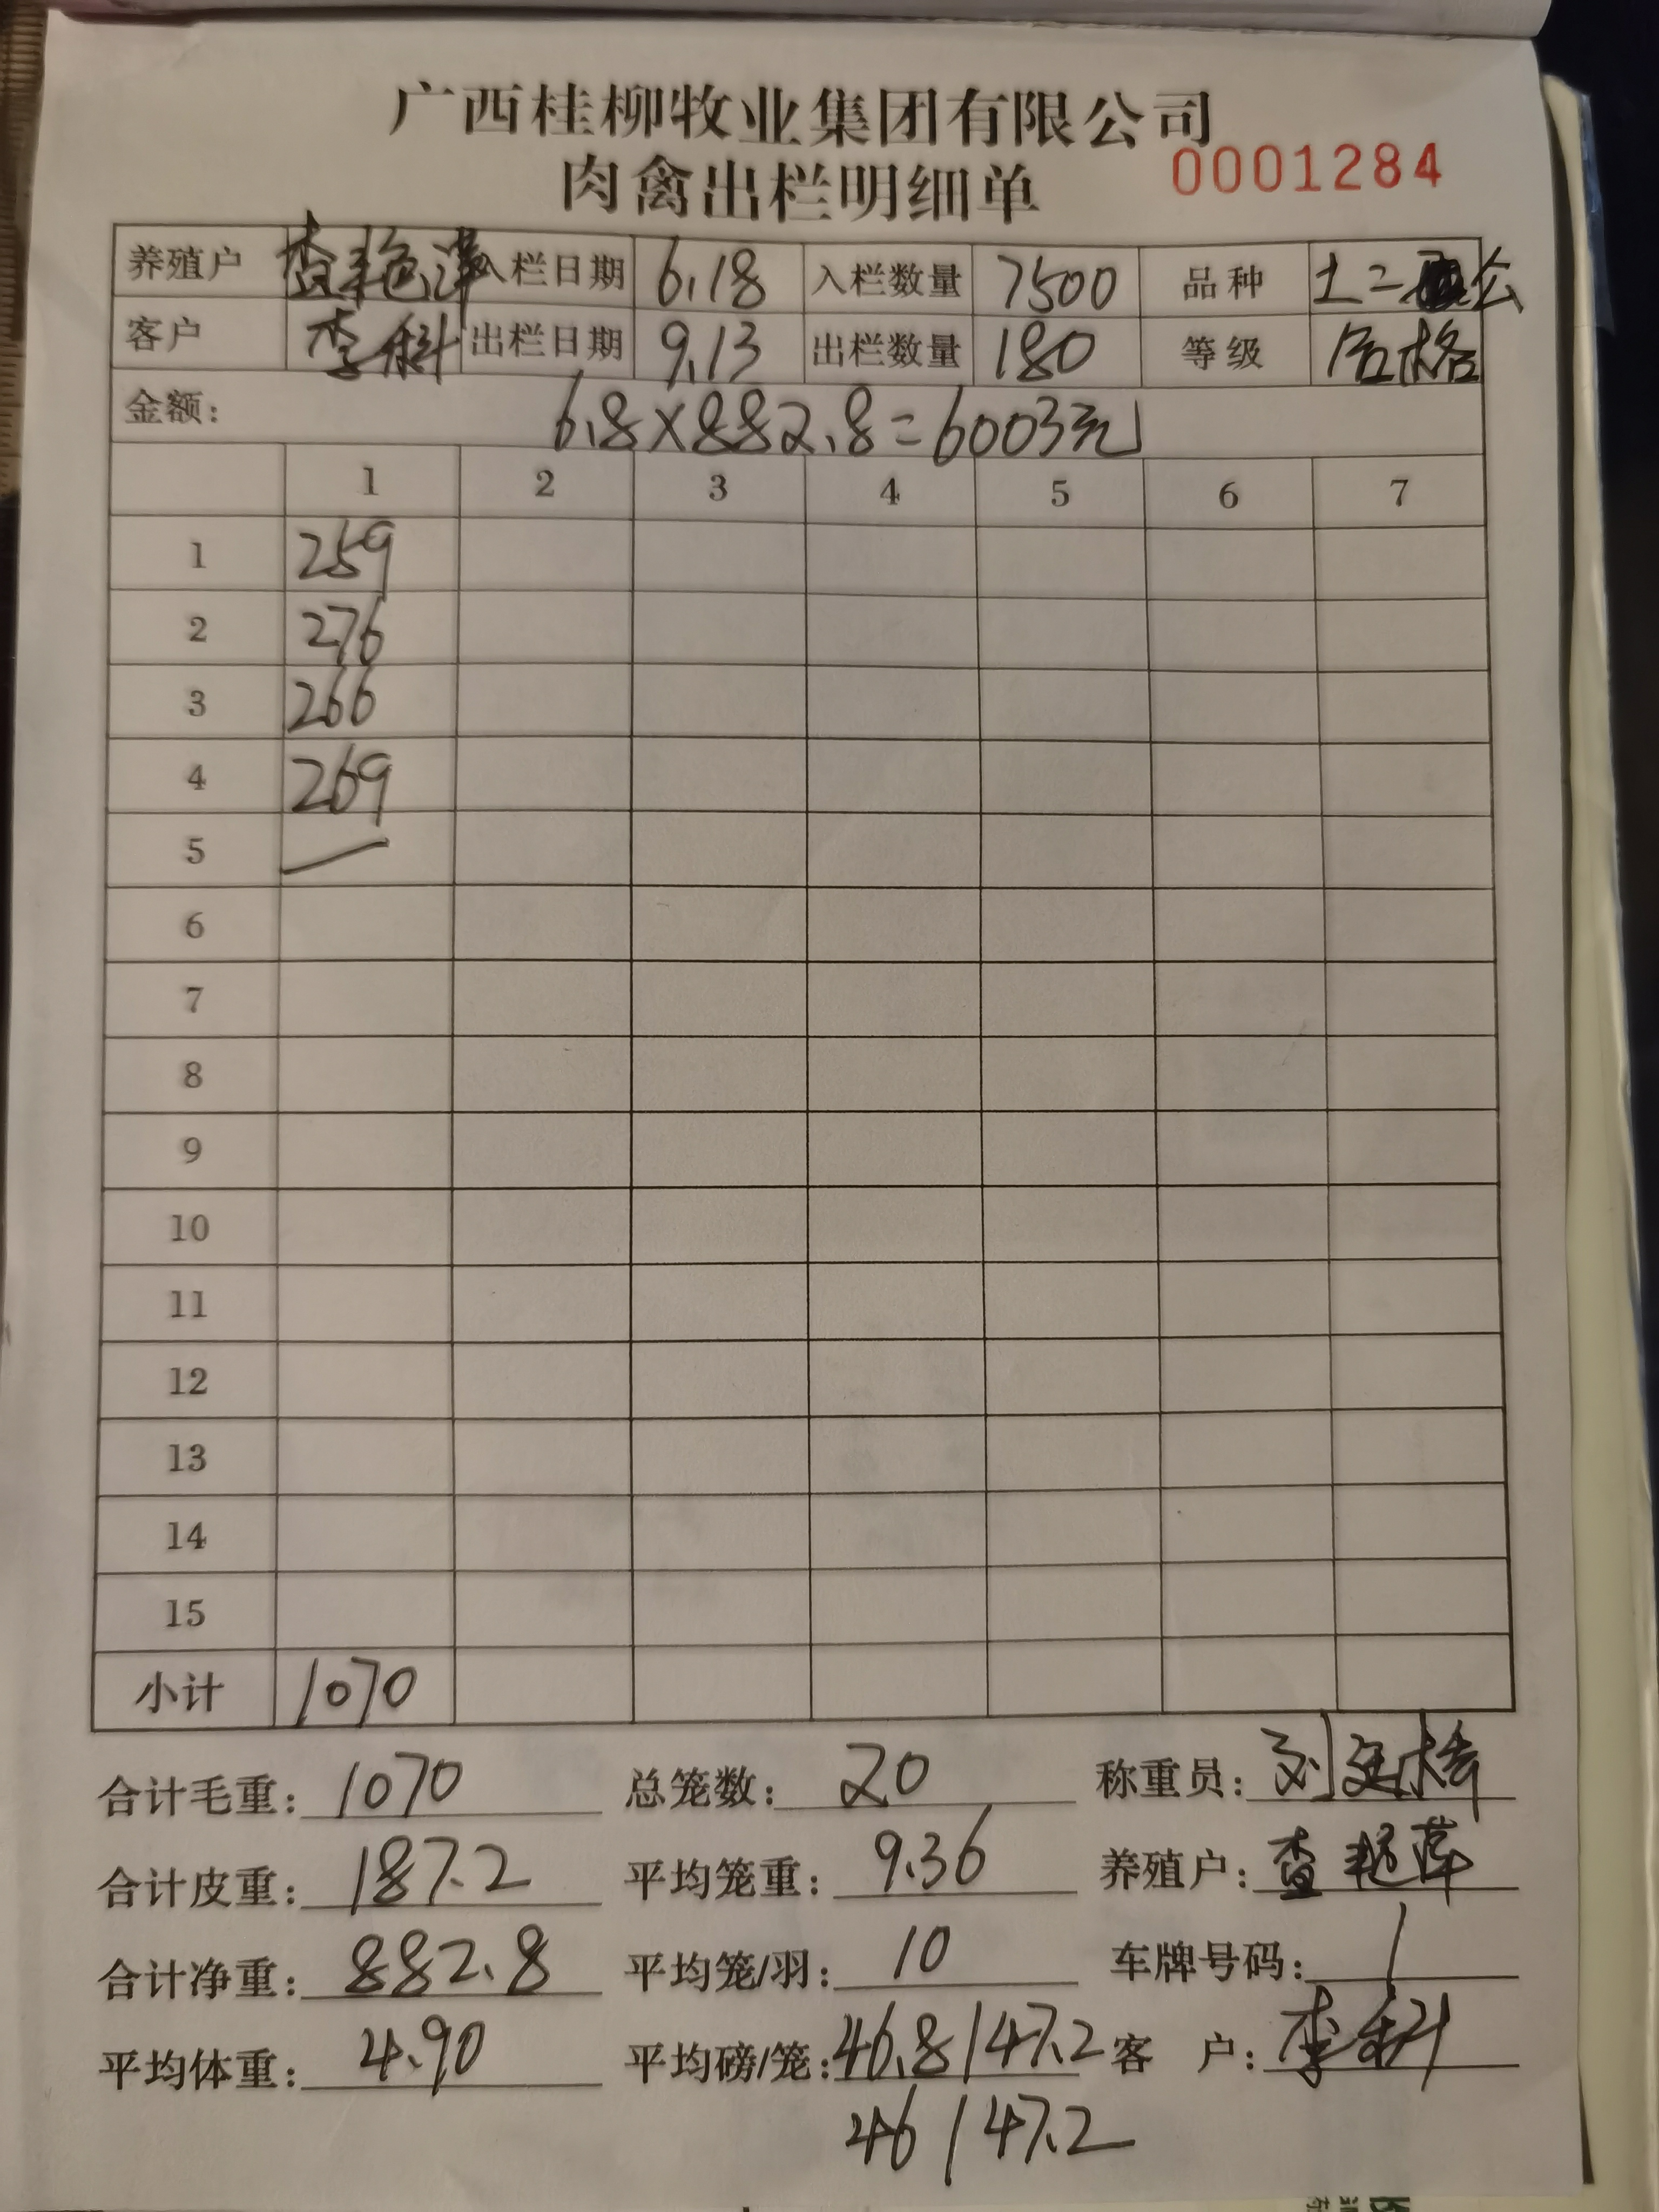 广西桂柳牧业集团有限公司
肉禽出栏明细单 0001284
养殖户 查艳萍 入栏日期 6.18 入栏数量 7500 品种 土二公
客户 李科 出栏日期 9.13 出栏数量 180 等级 合格
金额: 6.8×882.8=6003元
1 2 3 4 5 6 7
1 259
2 276
3 266
4 269
5
6
7
8
9
10
11
12
13
14
15
小计 1070
合计毛重: 1070 总笼数: 20 称重员: 刘
合计皮重: 187.2 平均笼重: 9.36 养殖户: 查艳萍
合计净重: 882.8 平均笼/羽: 10 车牌号码: /
平均体重: 4.90 平均磅/笼: 46.8/47.2 客 户: 李科
46/47.2